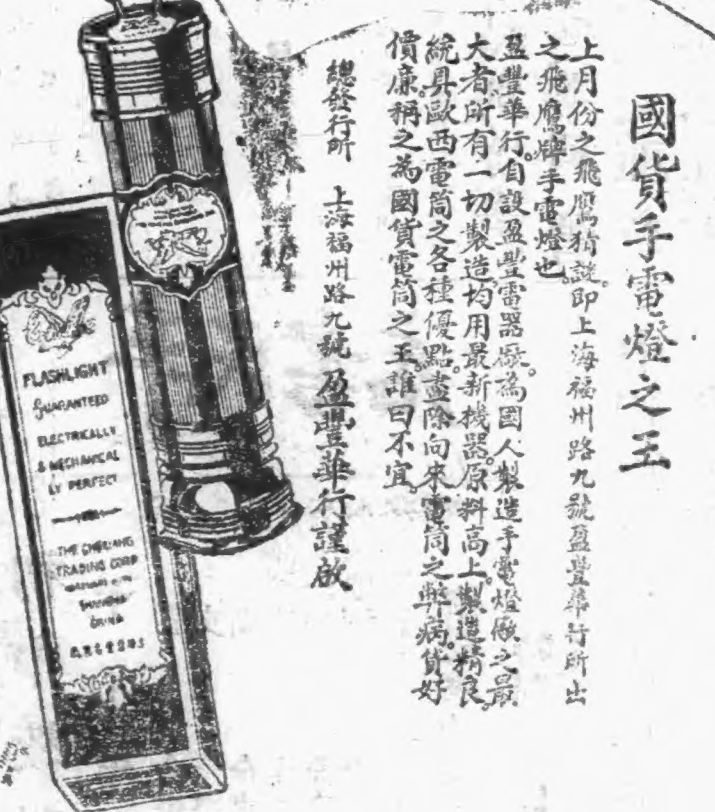 國貨手電燈之王
上月份之飛鷹猜謎。即上海福州路九號盈豐華行所出
之飛鷹牌手電燈也。
盈豐華行。自設盈豐電器廠。為國人製造手電燈廠之最
大者。所有一切製造。均用最新機器。原料高上。製造精良。
統具歐西電筒之各種優點。盡除向來電筒之弊病。貨好
價廉。稱之為國貨電筒之王。誰曰不宜。
總發行所 上海福州路九號 盈豐華行謹啟
FLASHLIGHT
GUARANTEED
ELECTRICALLY
& MECHANICAL
LY PERFECT
THE
TRADING CORP
SHANGHAI
CHINA